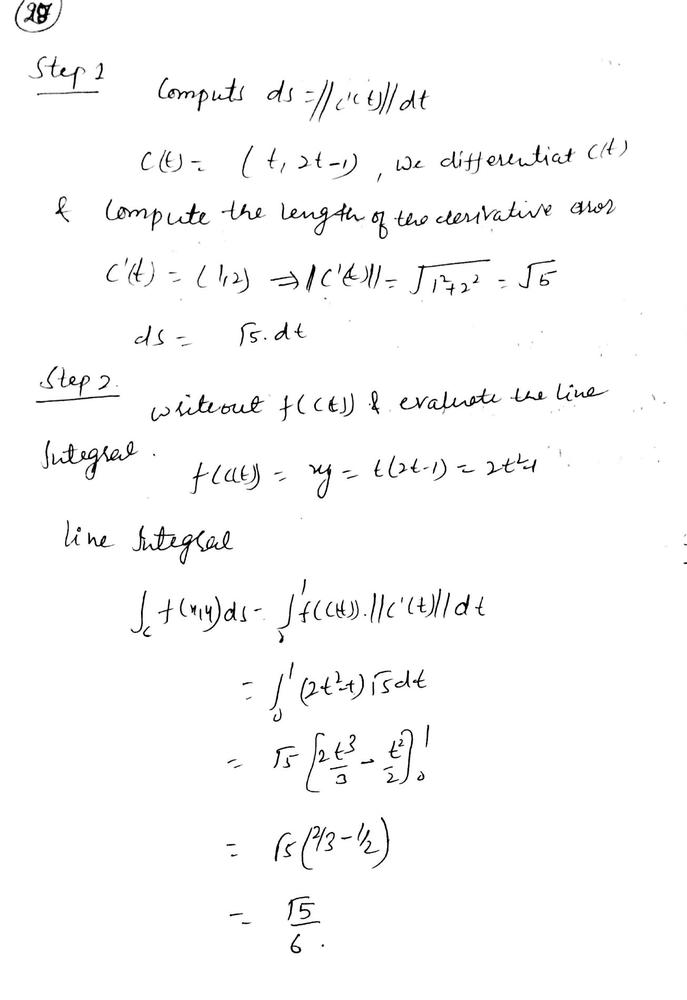 28
Step 1
Computs ds = ||c'(t)||dt
C(t) = (t, 2t-1), we differentiat C(t)
& Compute the length of the derivative
C'(t) = (1,2) ⇒ ||C'(t)|| = √1²+2² = √5
ds = √5.dt
Step 2.
writeout f(C(t)) & evaluate the line
Integral.
f(C(t)) = xy = t(2t-1) = 2t²-t
line Integral
∫c f(x,y)ds = ∫₀¹ f(C(t)).||C'(t)||dt
= ∫₀¹ (2t²-t)√5dt
= √5 [2t³/3 - t²/2]₀¹
= √5(2/3 - 1/2)
= √5/6.